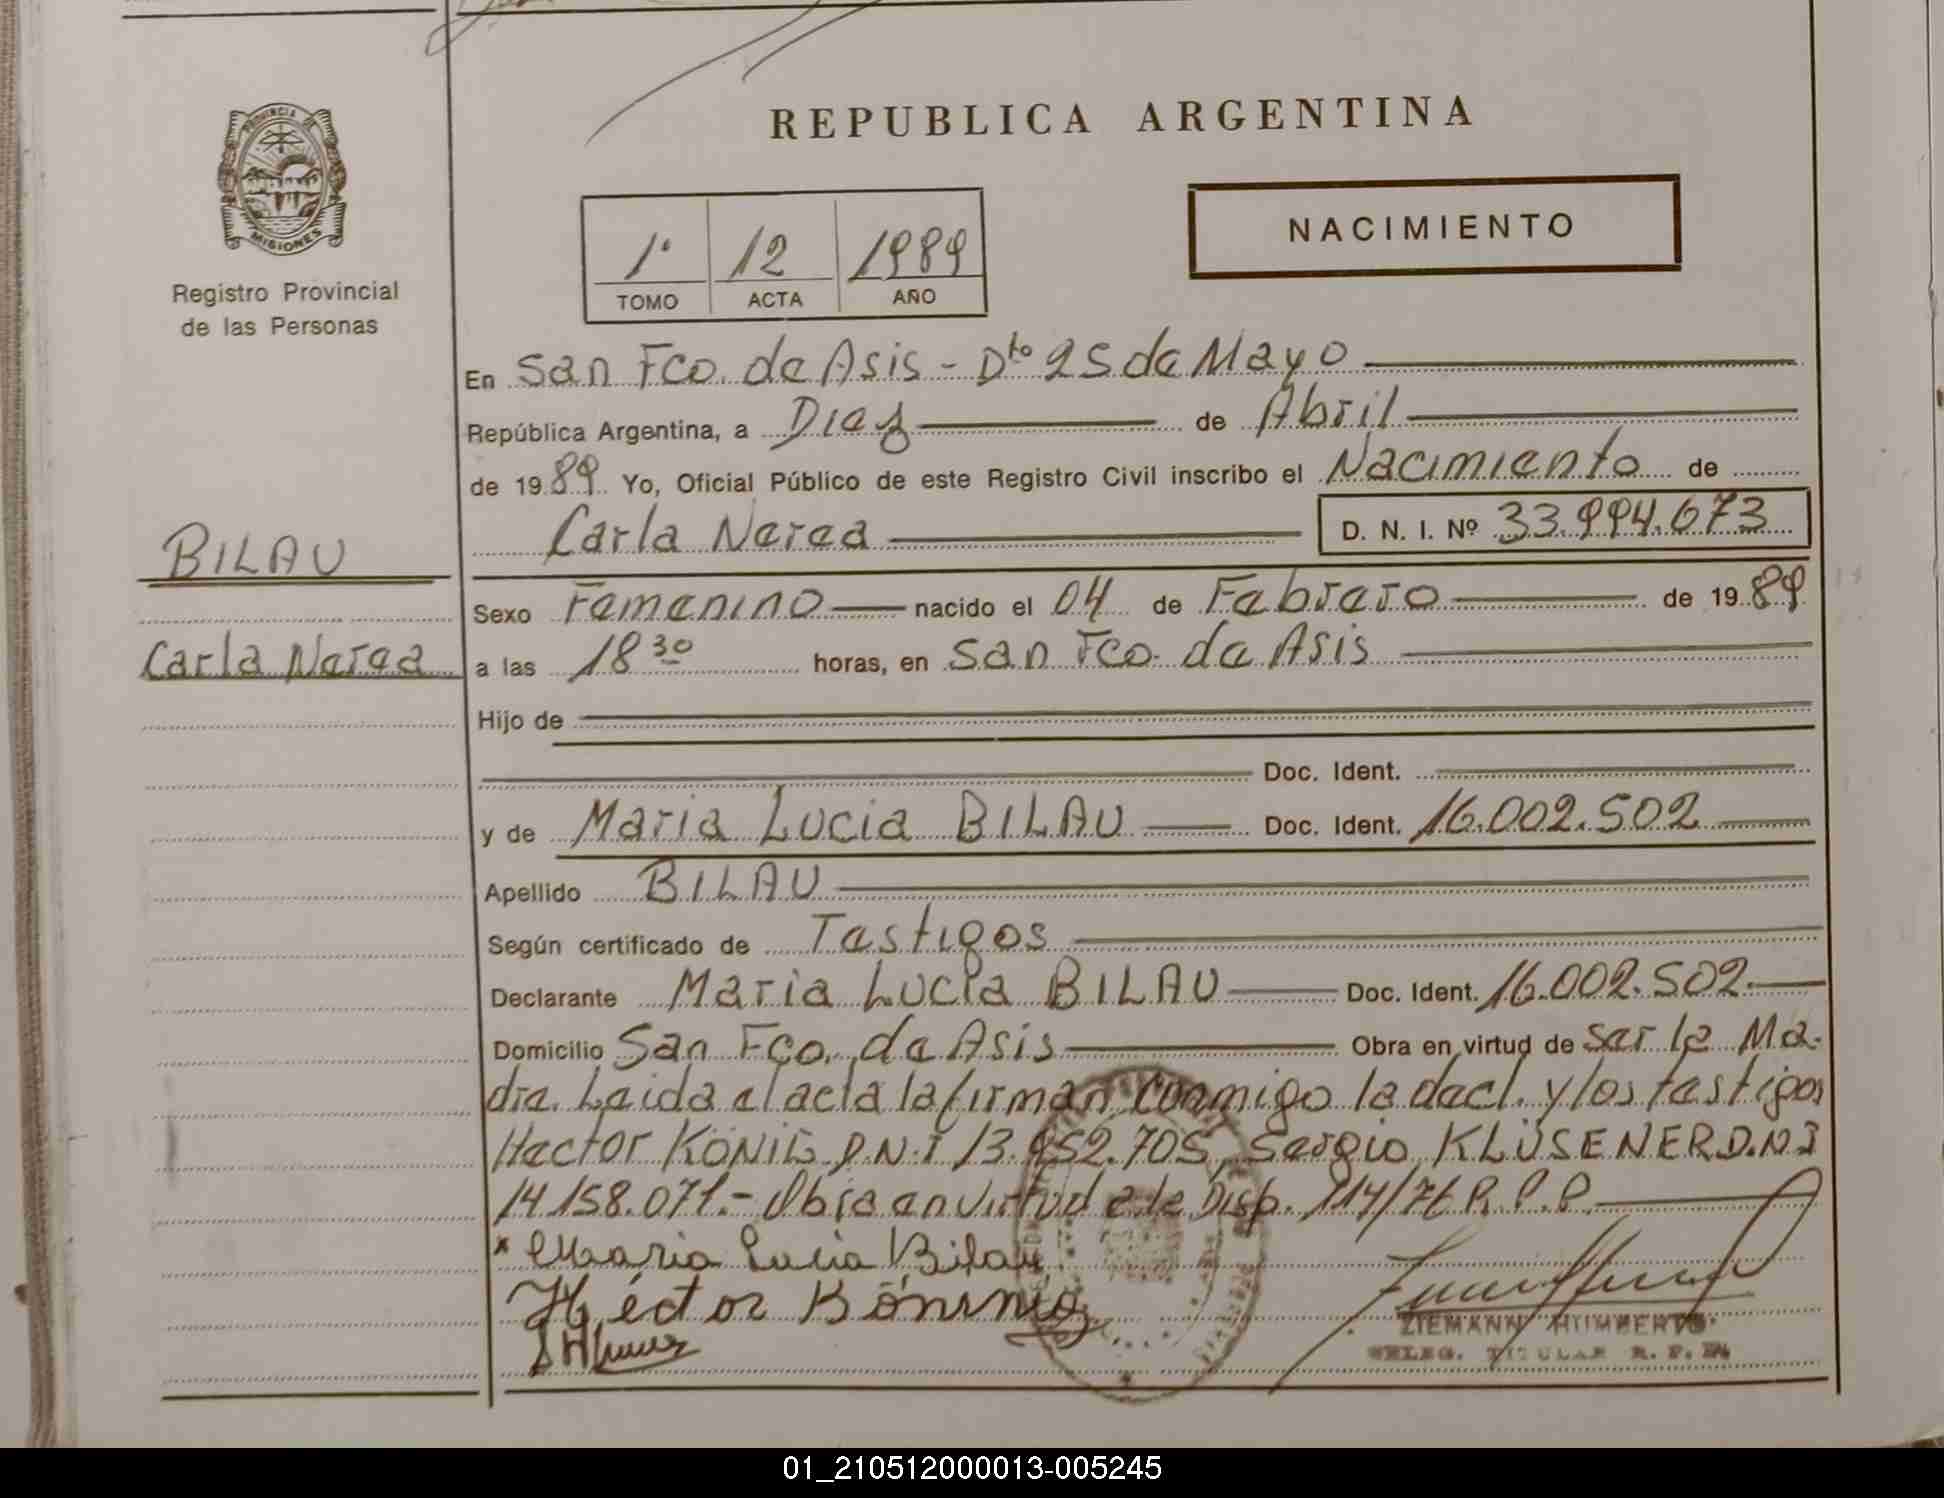 PROVINCIA DE
MISIONES
Registro Provincial
de las Personas
REPUBLICA ARGENTINA
1º 12 1989
TOMO ACTA AÑO
NACIMIENTO
En San Fco. de Asis - Dto 25 de Mayo
República Argentina, a Diez de Abril
de 1989 Yo, Oficial Público de este Registro Civil inscribo el Nacimiento de
Carla Nerea D. N. I. Nº 33.994.673
BILAU
Sexo Femenino nacido el 04 de Febrero de 1989
Carla Nerea
a las 18 30 horas, en San Fco. de Asis
Hijo de
Doc. Ident.
y de Maria Lucia BILAU Doc. Ident. 16.002.502
Apellido BILAU
Según certificado de Testigos
Declarante Maria Lucia BILAU Doc. Ident. 16.002.502.
Domicilio San Fco. de Asis Obra en virtud de ser la Ma-
dre. Leida el acta la firman conmigo la decl. y los testigos
Hector KÖNIG D.N.I 13.952.705, Sergio KLÜSENER D.N.I
14.158.071.- Obra en virtud de la Disp. 114/76 R.P.P.
* Maria Lucia Bilau
Héctor
ZIEMANN HUMBERTO
DELEG. TITULAR R. P. P.
01_210512000013-005245